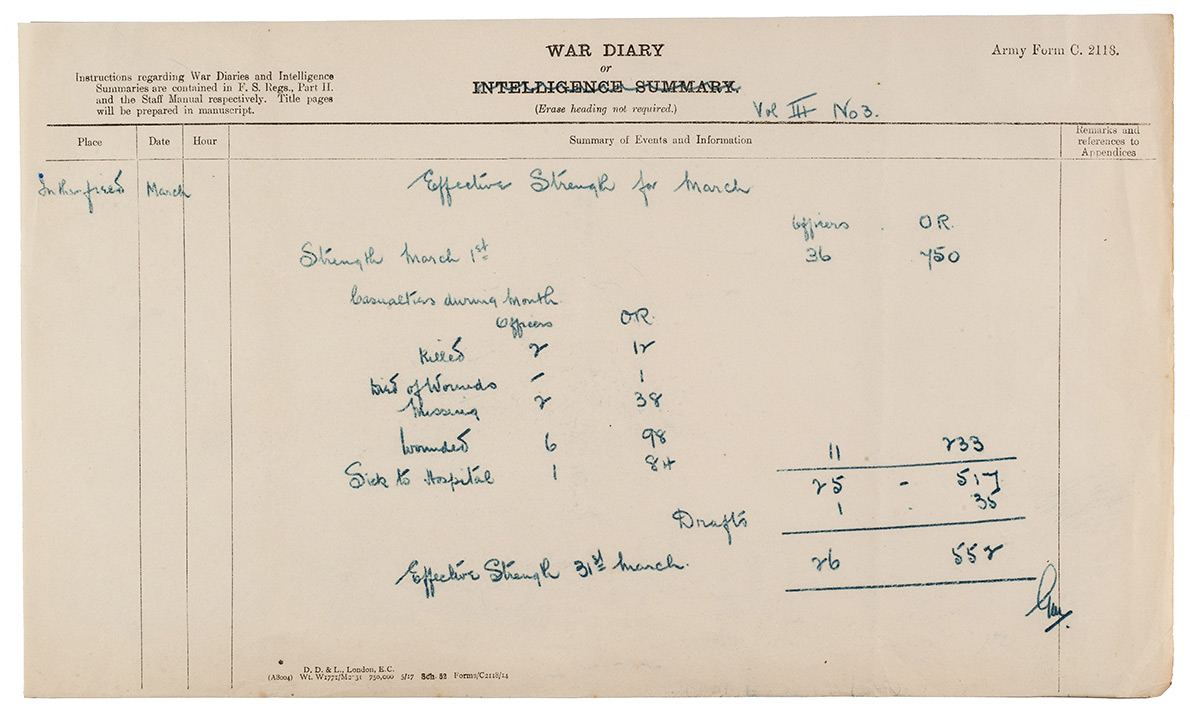 WAR DIARY
or
INTELLIGENCE SUMMARY.
(Erase heading not required.)
Army Form C. 2118.
Instructions regarding War Diaries and Intelligence
Summaries are contained in F. S. Regs., Part II.
and the Staff Manual respectively. Title pages
will be prepared in manuscript.
Vol III No 3.
Place Date Hour Summary of Events and Information Remarks and references to Appendices
In the field March Effective Strength for March
Officers . O.R.
Strength March 1st 36 750
Casualties during Month.
Officers O.R.
Killed 2 12
Died of Wounds - 1
Missing 2 38
Wounded 6 98
Sick to Hospital 1 84
11 233
25 - 517
Drafts 1 . 35
Effective Strength 31st March. 26 552
D. D. & L., London, E.C.
(A8004) Wt. W1771/M2 31 750,000 5/17 Sch. 52 Forms/C2118/14